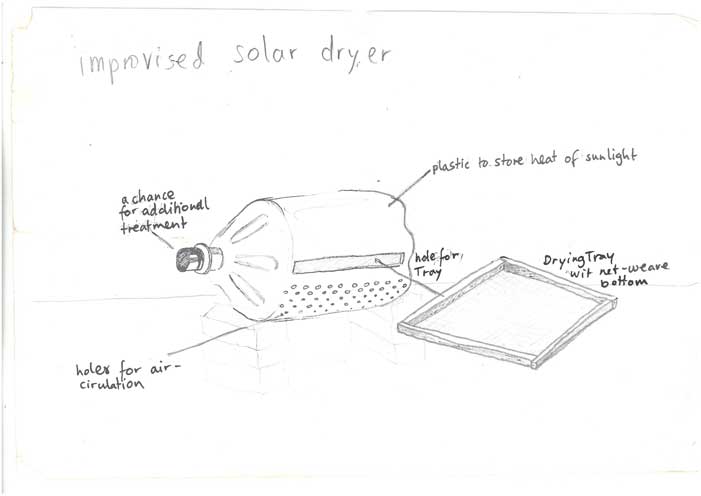 improvised solar dryer
plastic to store heat of sunlight
a chance
for additionall
treatment
hole for
Tray
Drying Tray
wit net-weave
bottom
holes for air-
cirulation